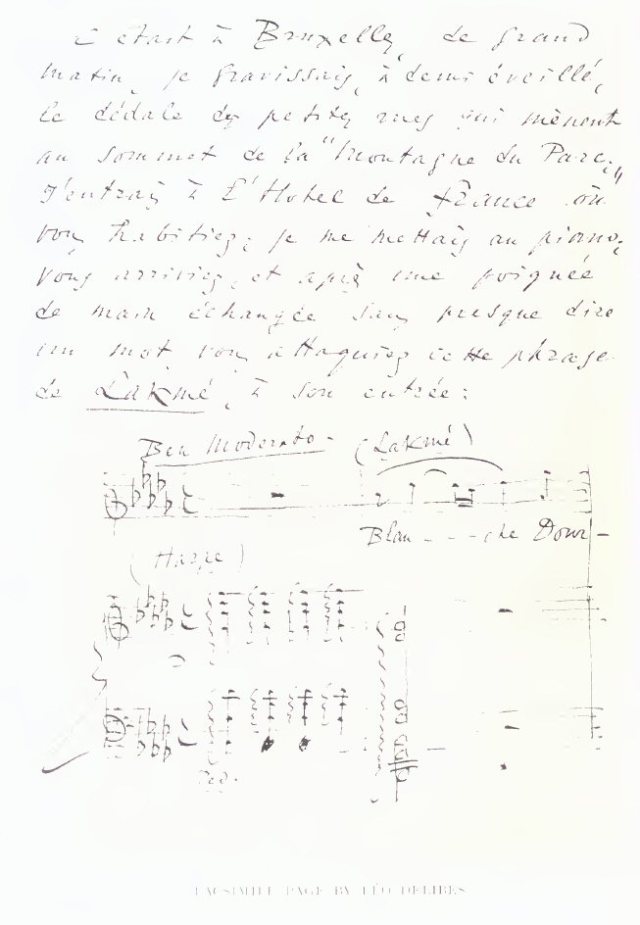 C'était à Bruxelles, de grand
matin, je gravissais, à demi éveillé,
le dédale des petites rues qui mènent
au sommet de la "Montagne du Parc,"
J'entrais à l'Hotel de France où
vous habitiez; je me mettais au piano;
vous arriviez, et après une poignée
de main échangée sans presque dire
un mot, vous attaquiez cette phrase
de Lakmé, à son entrée:
Ben Moderato - (Lakmé)
Blan - - - che Dour -
(Harpe)
Ped.
FACSIMILE PAGE BY LÉO DELIBES